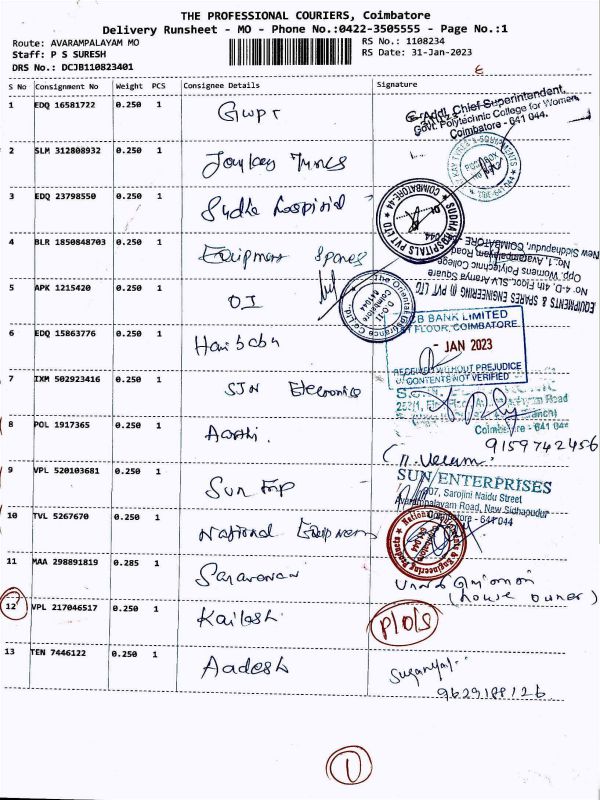 THE PROFESSIONAL COURIERS, Coimbatore
Delivery Runsheet - MO - Phone No.:0422-3505555 - Page No.:1
Route: AVARAMPALAYAM MO
RS No.: 1108234
Staff: P S SURESH
RS Date: 31-Jan-2023
DRS No.: DCJB110823401
S No Consignment No Weight PCS Consignee Details Signature
1 EDQ 16581722 0.250 1 GWPT
Addl. Chief Superintendent,
Govt. Polytechnic College for Women
Coimbatore - 641 044.
2 SLM 312808932 0.250 1
3 EDQ 23798550 0.250 1 Sudha Hospital
SUDHA HOSPITALS PVT LTD
COIMBATORE-44
4 BLR 1850848703 0.250 1 Equipment Spares
EQUIPMENTS & SPARES ENGINEERING (I) PVT LTD
No-4-D, 4th Floor, SLV Aranya Square
Opp. Womens Polytechnic College
No: 1, Avarampalayam Road
New Siddhapudur, COIMBATORE
5 APK 1215420 0.250 1 OI
The Oriental Insurance Co Ltd.
Coimbatore
641044
6 EDQ 15863776 0.250 1 Haribabu
CB BANK LIMITED
ST FLOOR, COIMBATORE
- JAN 2023
RECEIVED WITHOUT PREJUDICE
CONTENTS NOT VERIFIED
7 IXM 502923416 0.250 1 SJN Electronics
Coimbatore - 641 044
8 POL 1917365 0.250 1 Aarthi.
9159742456
9 VPL 520103681 0.250 1 Sun Enp
SUN ENTERPRISES
607, Sarojini Naidu Street
Avarampalayam Road, New Sidhapudur
Coimbatore - 641 044
10 TVL 5267670 0.250 1 National Equipments
11 MAA 298891819 0.285 1 Saravanan
(house owner)
12 VPL 217046517 0.250 1 Kailash
P/O/S
13 TEN 7446122 0.250 1 Aadesh
Suganya
9629188126
1